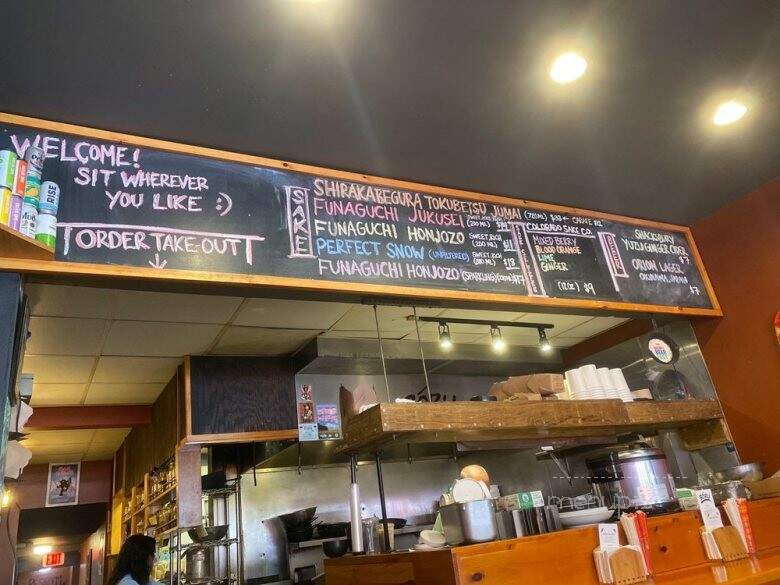 WELCOME!
SIT WHEREVER
YOU LIKE :)
ORDER TAKE-OUT
SAKE
SHIRAKABEGURA TOKUBETSU JUMAI
FUNAGUCHI JUKUSEI
FUNAGUCHI HONJOZO (SWEET, RICH
PERFECT SNOW (UNFILTERED) SWEET, RICH
FUNAGUCHI HONJOZO (SPARKLING)
CARAFE
COLORADO SAKE CO.
MIXED BERRY
BLOOD ORANGE
LIME
GINGER
(12oz) $9
SHACKSBURY
YUZU GINGER CIDER
$7
ORION LAGER
OKINAWA, JAPAN
$7
RISE
EXIT
menupix